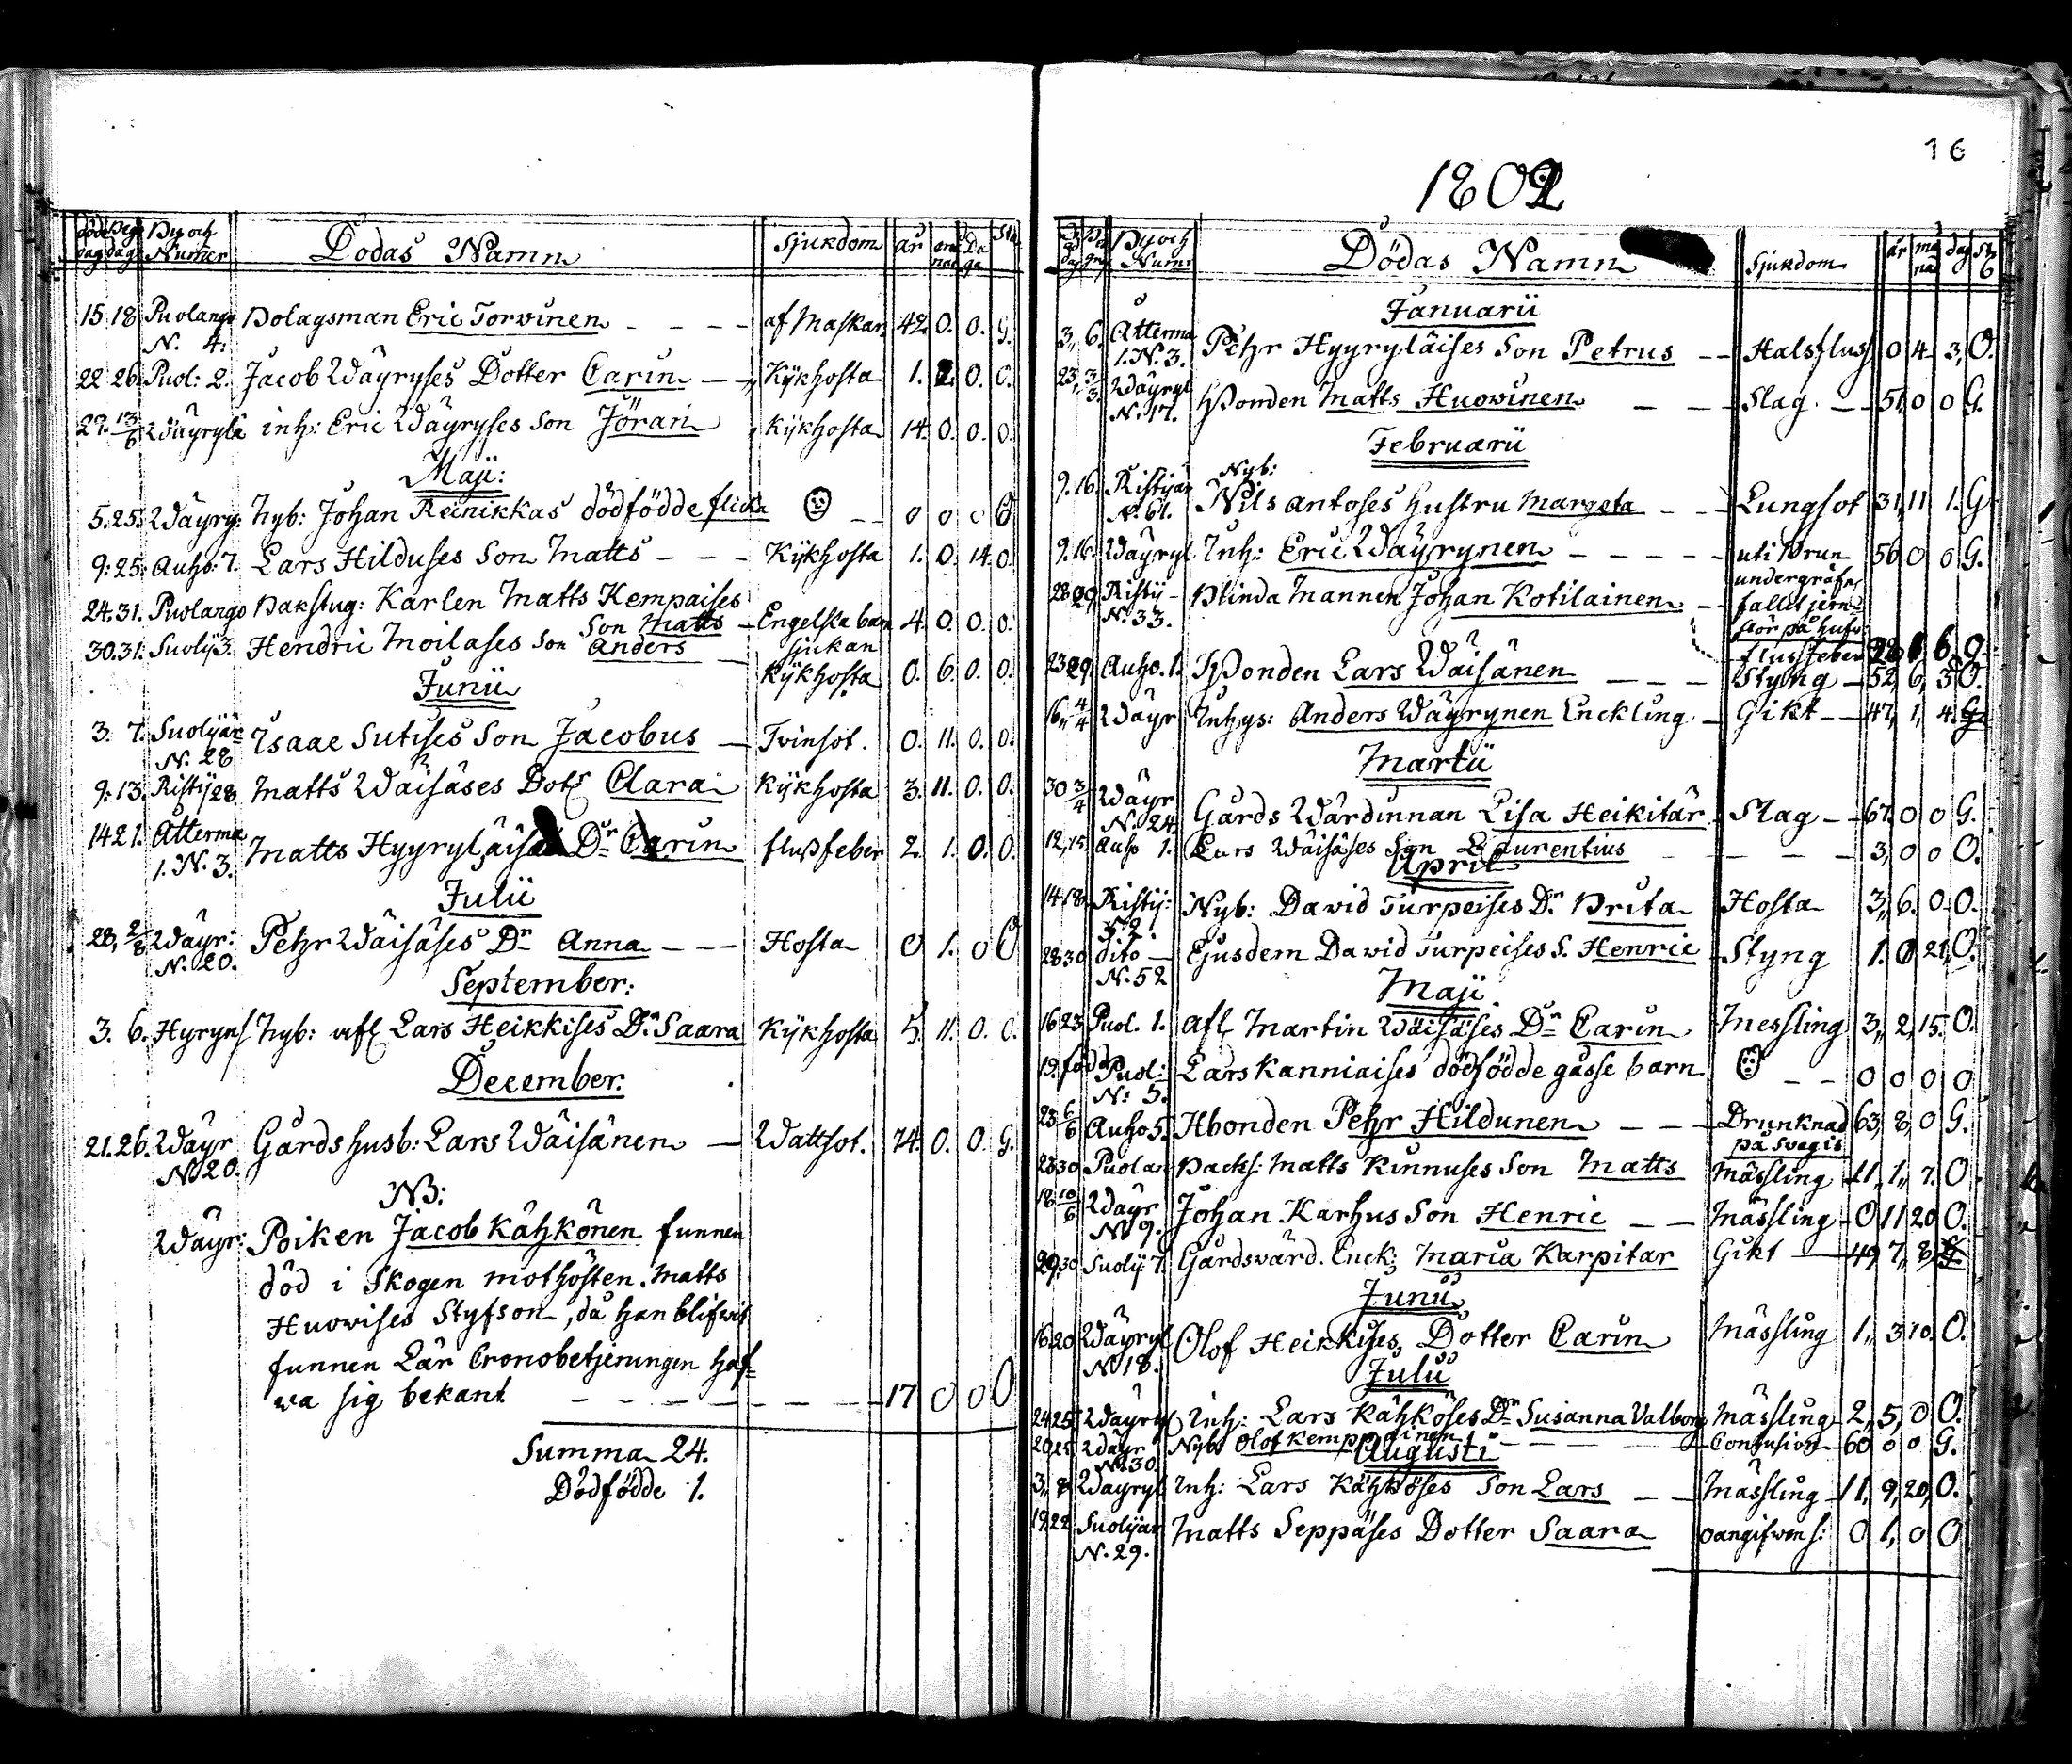 döde dag Beg: dag By och Numer Dödas Namn Sjukdom år må nad Da ga Stå
15. 18. Puolango N. 4: Bolagsman Eric Torwinen - - - - af Maskar 42. 0. 0. G.
22 26. Puol: 2. Jacob Wäyryses Dotter Carin - - Kikhosta 1. 2. 0. 0.
27. 13/6 Wäyrylä inh: Eric Wäyryses Son Jöran Kikhosta 14. 0. 0. 0.
Maji:
5. 25. Wäyry: Nyb: Johan Reinikkas dödfödde flicka - - 0 0 0 0
9: 25: Auho: 7. Lars Hilduses Son Matts - - - Kikhosta 1. 0. 14. 0.
24. 31. Puolango Bakstug: Karlen Matts Kempaises
Son Matts - Engelska barn 4. 0. 0. 0.
sjukan
30. 31. Suolij 3. Hendric Moilases Son Anders - Kikhosta 0. 6. 0. 0.
Junii
3. 7. Suolijär N. 28 Isaac Sutises Son Jacobus - Tvinsot. 0. 11. 0. 0.
9: 13. Ristij 28. Matts Wäisäses Dotr Clara Kikhosta 3. 11. 0. 0.
14 21. Atterma 1. N. 3. Matts Hyyryläises Dr Carin flussfeber 2. 1. 0. 0.
Julii
28, 2/8 Wäyr: N. 20. Pehr Wäisäses Dr Anna - - - Hosta 0 1. 0 0
September:
3. 6. Hyryns Nyb: afl Lars Heikkises Dr Saara Kikhosta 5. 11. 0. 0.
December:
21. 26. Wäyr No 20. Gårds husb: Lars Wäisänen - Wattsot. 74. 0. 0. G.
NB:
Wäyr: Poiken Jacob Kähkönen funnen
död i Skogen mothösten. Matts
Huowises Styfson, då han blifwit
funnen Lär Cronobetjeningen haf=
wa sig bekant - - - - - - 17 0 0 0
Summa 24.
Dödfödde 1.
16
1802
By och Numr Dödas Namn Sjukdom år må nad dag Stå
Januarii
3, 6. Atterma 1. N. 3. Pehr Hyyryläises Son Petrus - - Halsfluss 0 4. 3, 0.
23, 3/3 Wäyryl N. 17. HBonden Matts Huowinen - - Slag. - 51, 0 0 G.
Februarii
9. 16. Ristijär N. 61. Nyb: Nils Antoses hustru Margeta - - Lungsot 31, 11 1. G.
9. 16. Wäyryl Inh: Eric Wäyrynen - - - - uti Brun 56 0 0 G.
undergräfn
28. 29. Ristij - N. 33. Blinda Mannen Johan Kotilainen - - fallit jern=
stör på hufv
flussfeber
23 29. Auho. 1. HBonden Lars Wäisänen - - - Styng - 52, 6, 3 0.
16, 4/4 Wäyr Inhys: Anders Wäyrynen Enckling. - Gikt - 47, 1, 4. G.
Martii
30 3/4 Wäyr N. 24. Gårds Wärdinnan Lisa Heikitär Slag - - 67. 0 0 G.
12, 15. Auho 1. Lars Wäisäses Son Laurentius - - - - 3, 0 0 0.
April
14 18 Ristij: 52. Nyb: David Turpeises Dr Brita Hosta 3, 6. 0. 0.
28 30 dito - N. 52 Ejusdem David Turpeises S. Henric Styng 1. 0 21, 0.
Maji
16 23 Puol. 1. afl Martin Wäisäses Dr Carin Messling 3, 2, 15. 0.
19. född Puol: N: 5. Lars Kanniaises dödfödde gåsse barn - - 0 0 0 0
23 6/6 Auho 5. Hbonden Pehr Hildunen - - - Drunknad 63, 8, 0 G.
på Svagis
28 30 Puolan Backs: Matts Kinnuses Son Matts Mässling 11, 1, 7. 0.
18. 10/6 Wäyr No 9. Johan Karhus Son Henric - - Mässling - 0 11 20 0.
29, 30 Suolij 7. Gårdsvärd. Enck: Maria Karpitar Gikt - 49 7, 8, G
Junii
16 20 Wäyryl No 18. Olof Heikkises, Dotter Carin Mässling 1, 3 10. 0.
Julii
24 25 Wäyryl Inh: Lars Kähköses Dr Susanna Valborg Mässling 2, 5, 0 0.
20 25 Wäyr No 30 Nyb: Olof Kempainen - - - Contusion - 60 0 0 G.
Augusti
3, 8 Wäyryl Inh: Lars Kähköses Son Lars - - Mässling 11, 9, 20, 0.
19 22 Suolijär N. 29. Matts Seppäses Dotter Saara oangifwen s: 0 1, 0 0